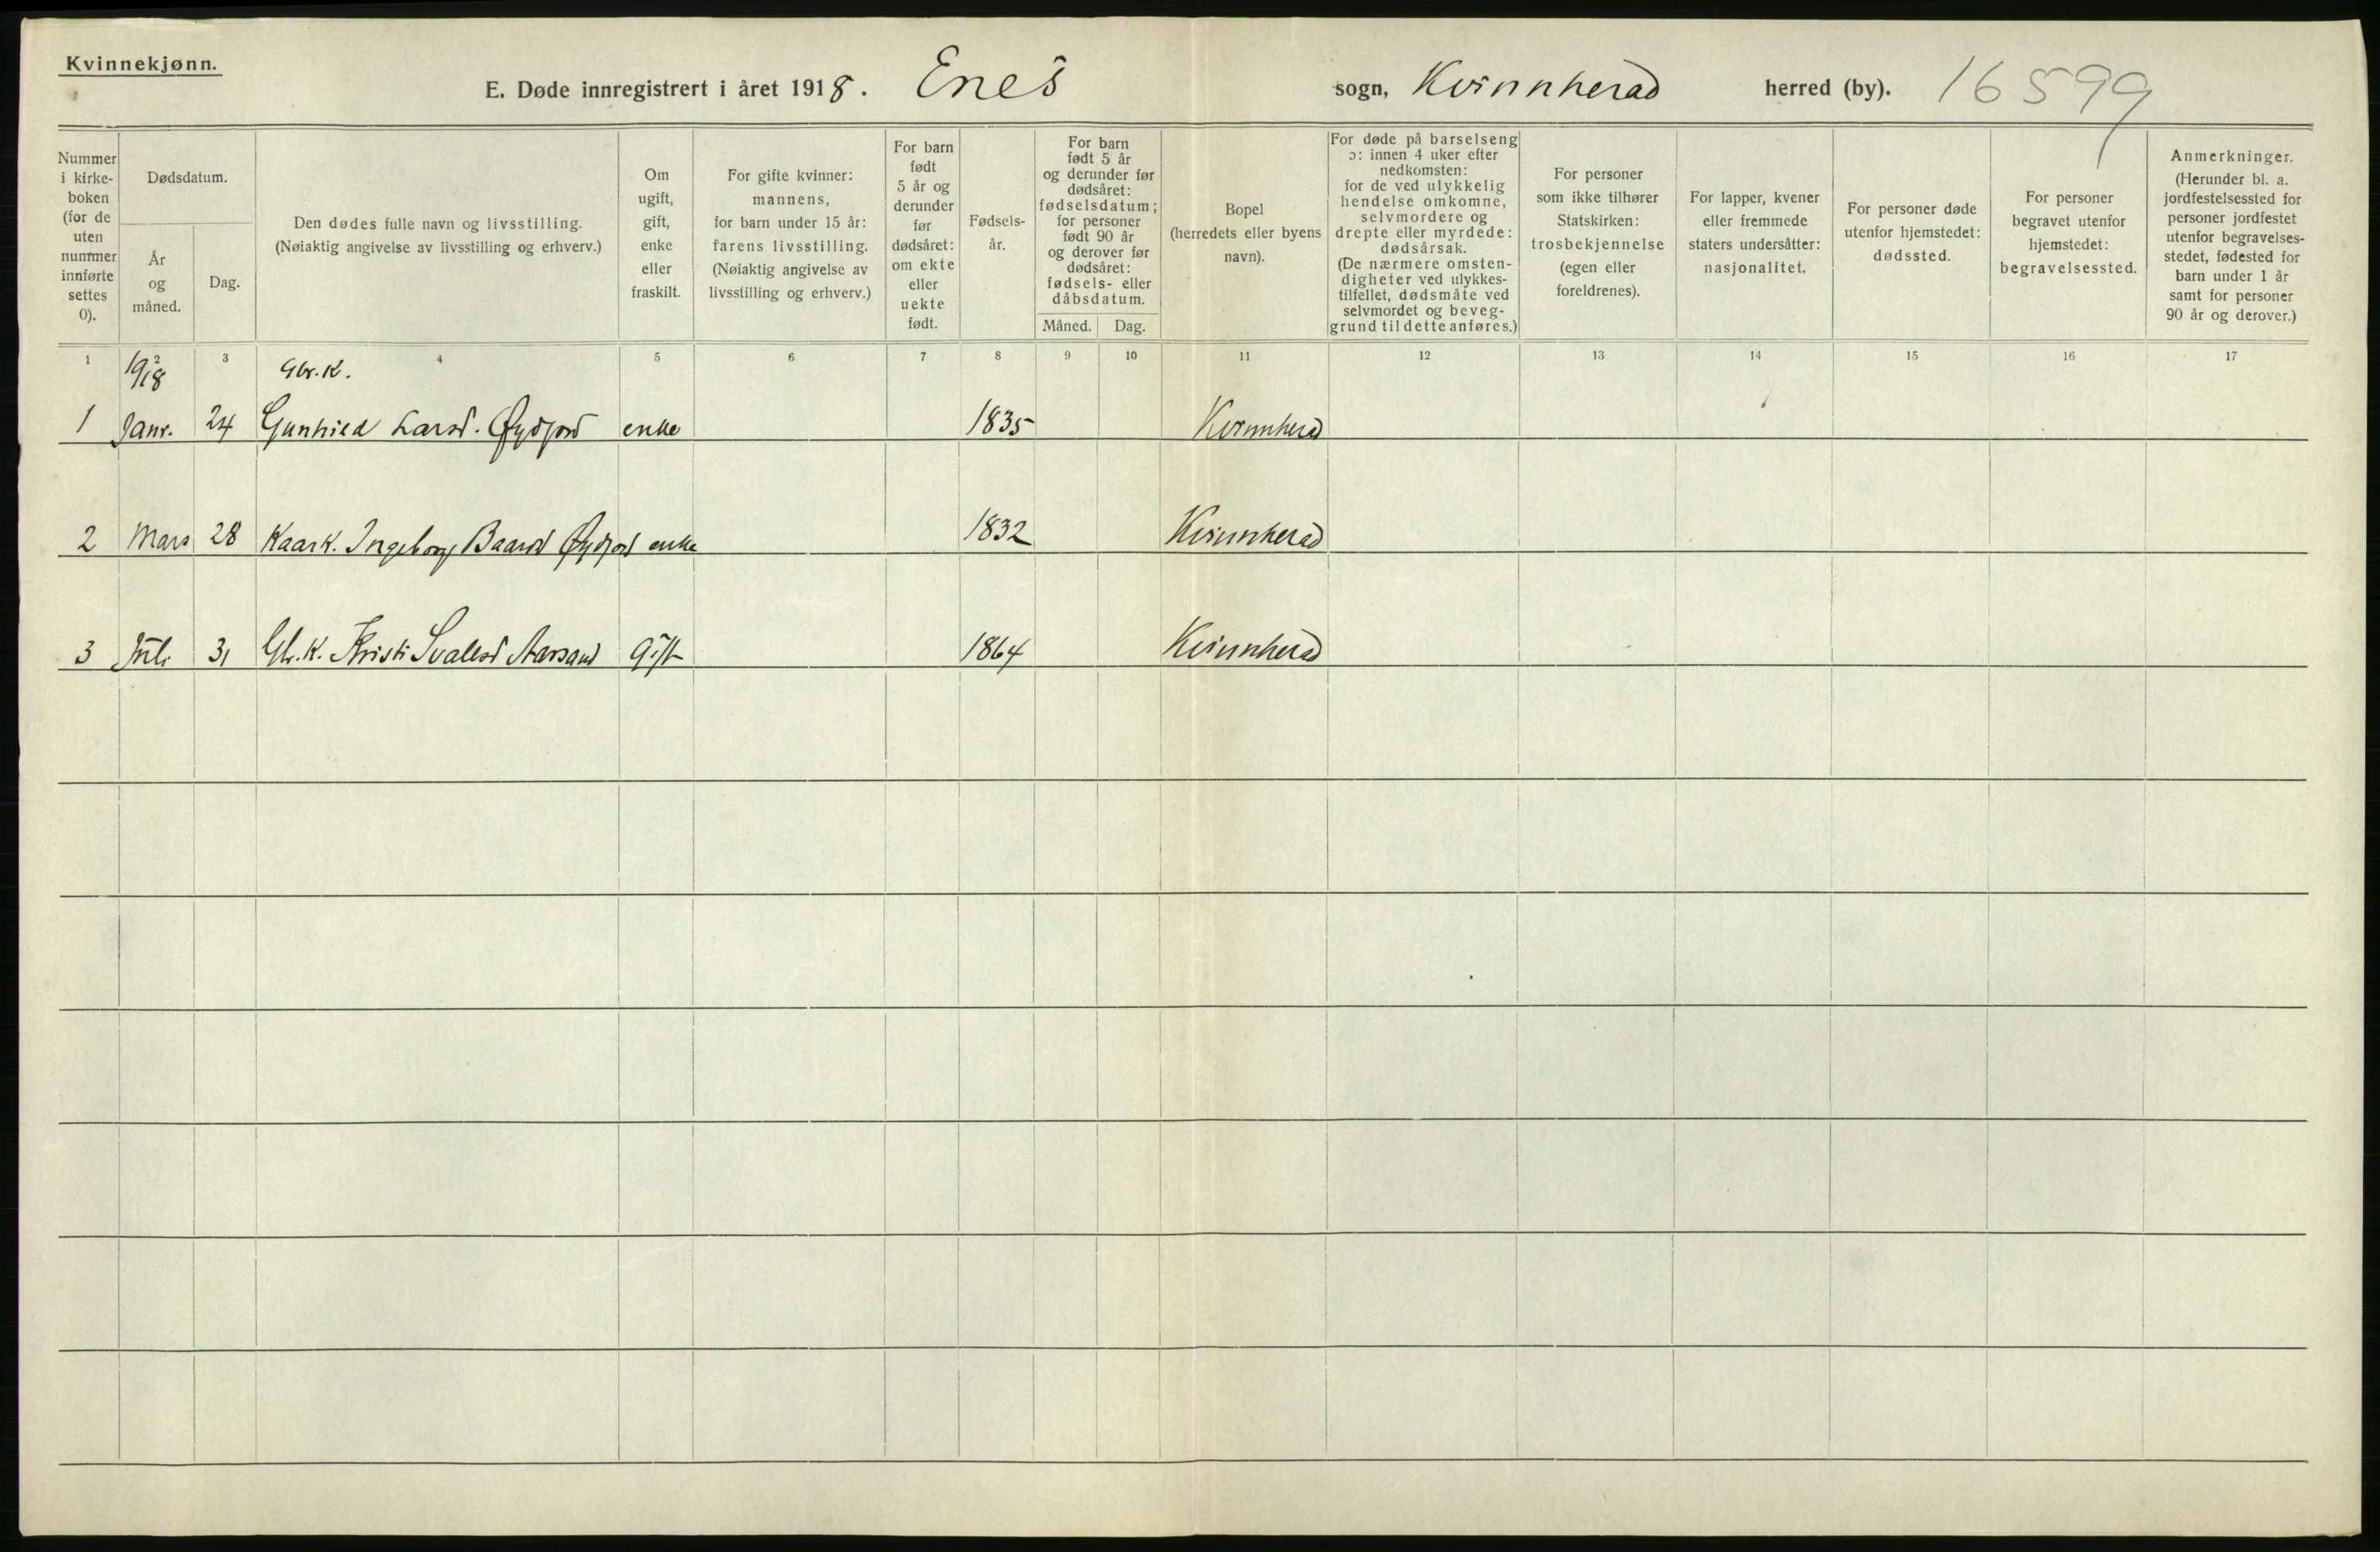 Kvinnekjønn.
E. Døde innregistrert i året 1918. Enes sogn, Kvinnherad herred (by). 16599
Nummer i kirke-boken (for de uten nummer innførte settes 0).
Dødsdatum.
År og måned.
Dag.
Den dødes fulle navn og livsstilling.
(Nøiaktig angivelse av livsstilling og erhverv.)
Om ugift, gift, enke eller fraskilt.
For gifte kvinner: mannens, for barn under 15 år: farens livsstilling. (Nøiaktig angivelse av livsstilling og erhverv.)
For barn født 5 år og derunder før dødsåret: om ekte eller uekte født.
Fødsels-år.
For barn født 5 år og derunder før dødsåret: fødselsdatum; for personer født 90 år og derover før dødsåret: fødsels- eller dåbsdatum.
Måned. Dag.
Bopel (herredets eller byens navn).
For døde på barselseng ɔ: innen 4 uker efter nedkomsten: for de ved ulykkelig hendelse omkomne, selvmordere og drepte eller myrdede: dødsårsak. (De nærmere omsten-digheter ved ulykkes-tilfellet, dødsmåte ved selvmordet og beveg-grund til dette anføres.)
For personer som ikke tilhører Statskirken: trosbekjennelse (egen eller foreldrenes).
For lapper, kvener eller fremmede staters undersåtter: nasjonalitet.
For personer døde utenfor hjemstedet: dødssted.
For personer begravet utenfor hjemstedet: begravelsessted.
Anmerkninger. (Herunder bl. a. jordfestelsessted for personer jordfestet utenfor begravelses-stedet, fødested for barn under 1 år samt for personer 90 år og derover.)
1 2 3 4 5 6 7 8 9 10 11 12 13 14 15 16 17
1918 Gbr.K.
1 Janr. 24 Gunhild Larsd. Øydfjord enke 1835 Kvinnherad
2 Mars 28 Kaark. Ingeborg Baardsd Øydfjord enke 1832 Kvinnherad
3 Juli 31 Gb.K. Kristi Aarsand Gift 1864 Kvinnherad